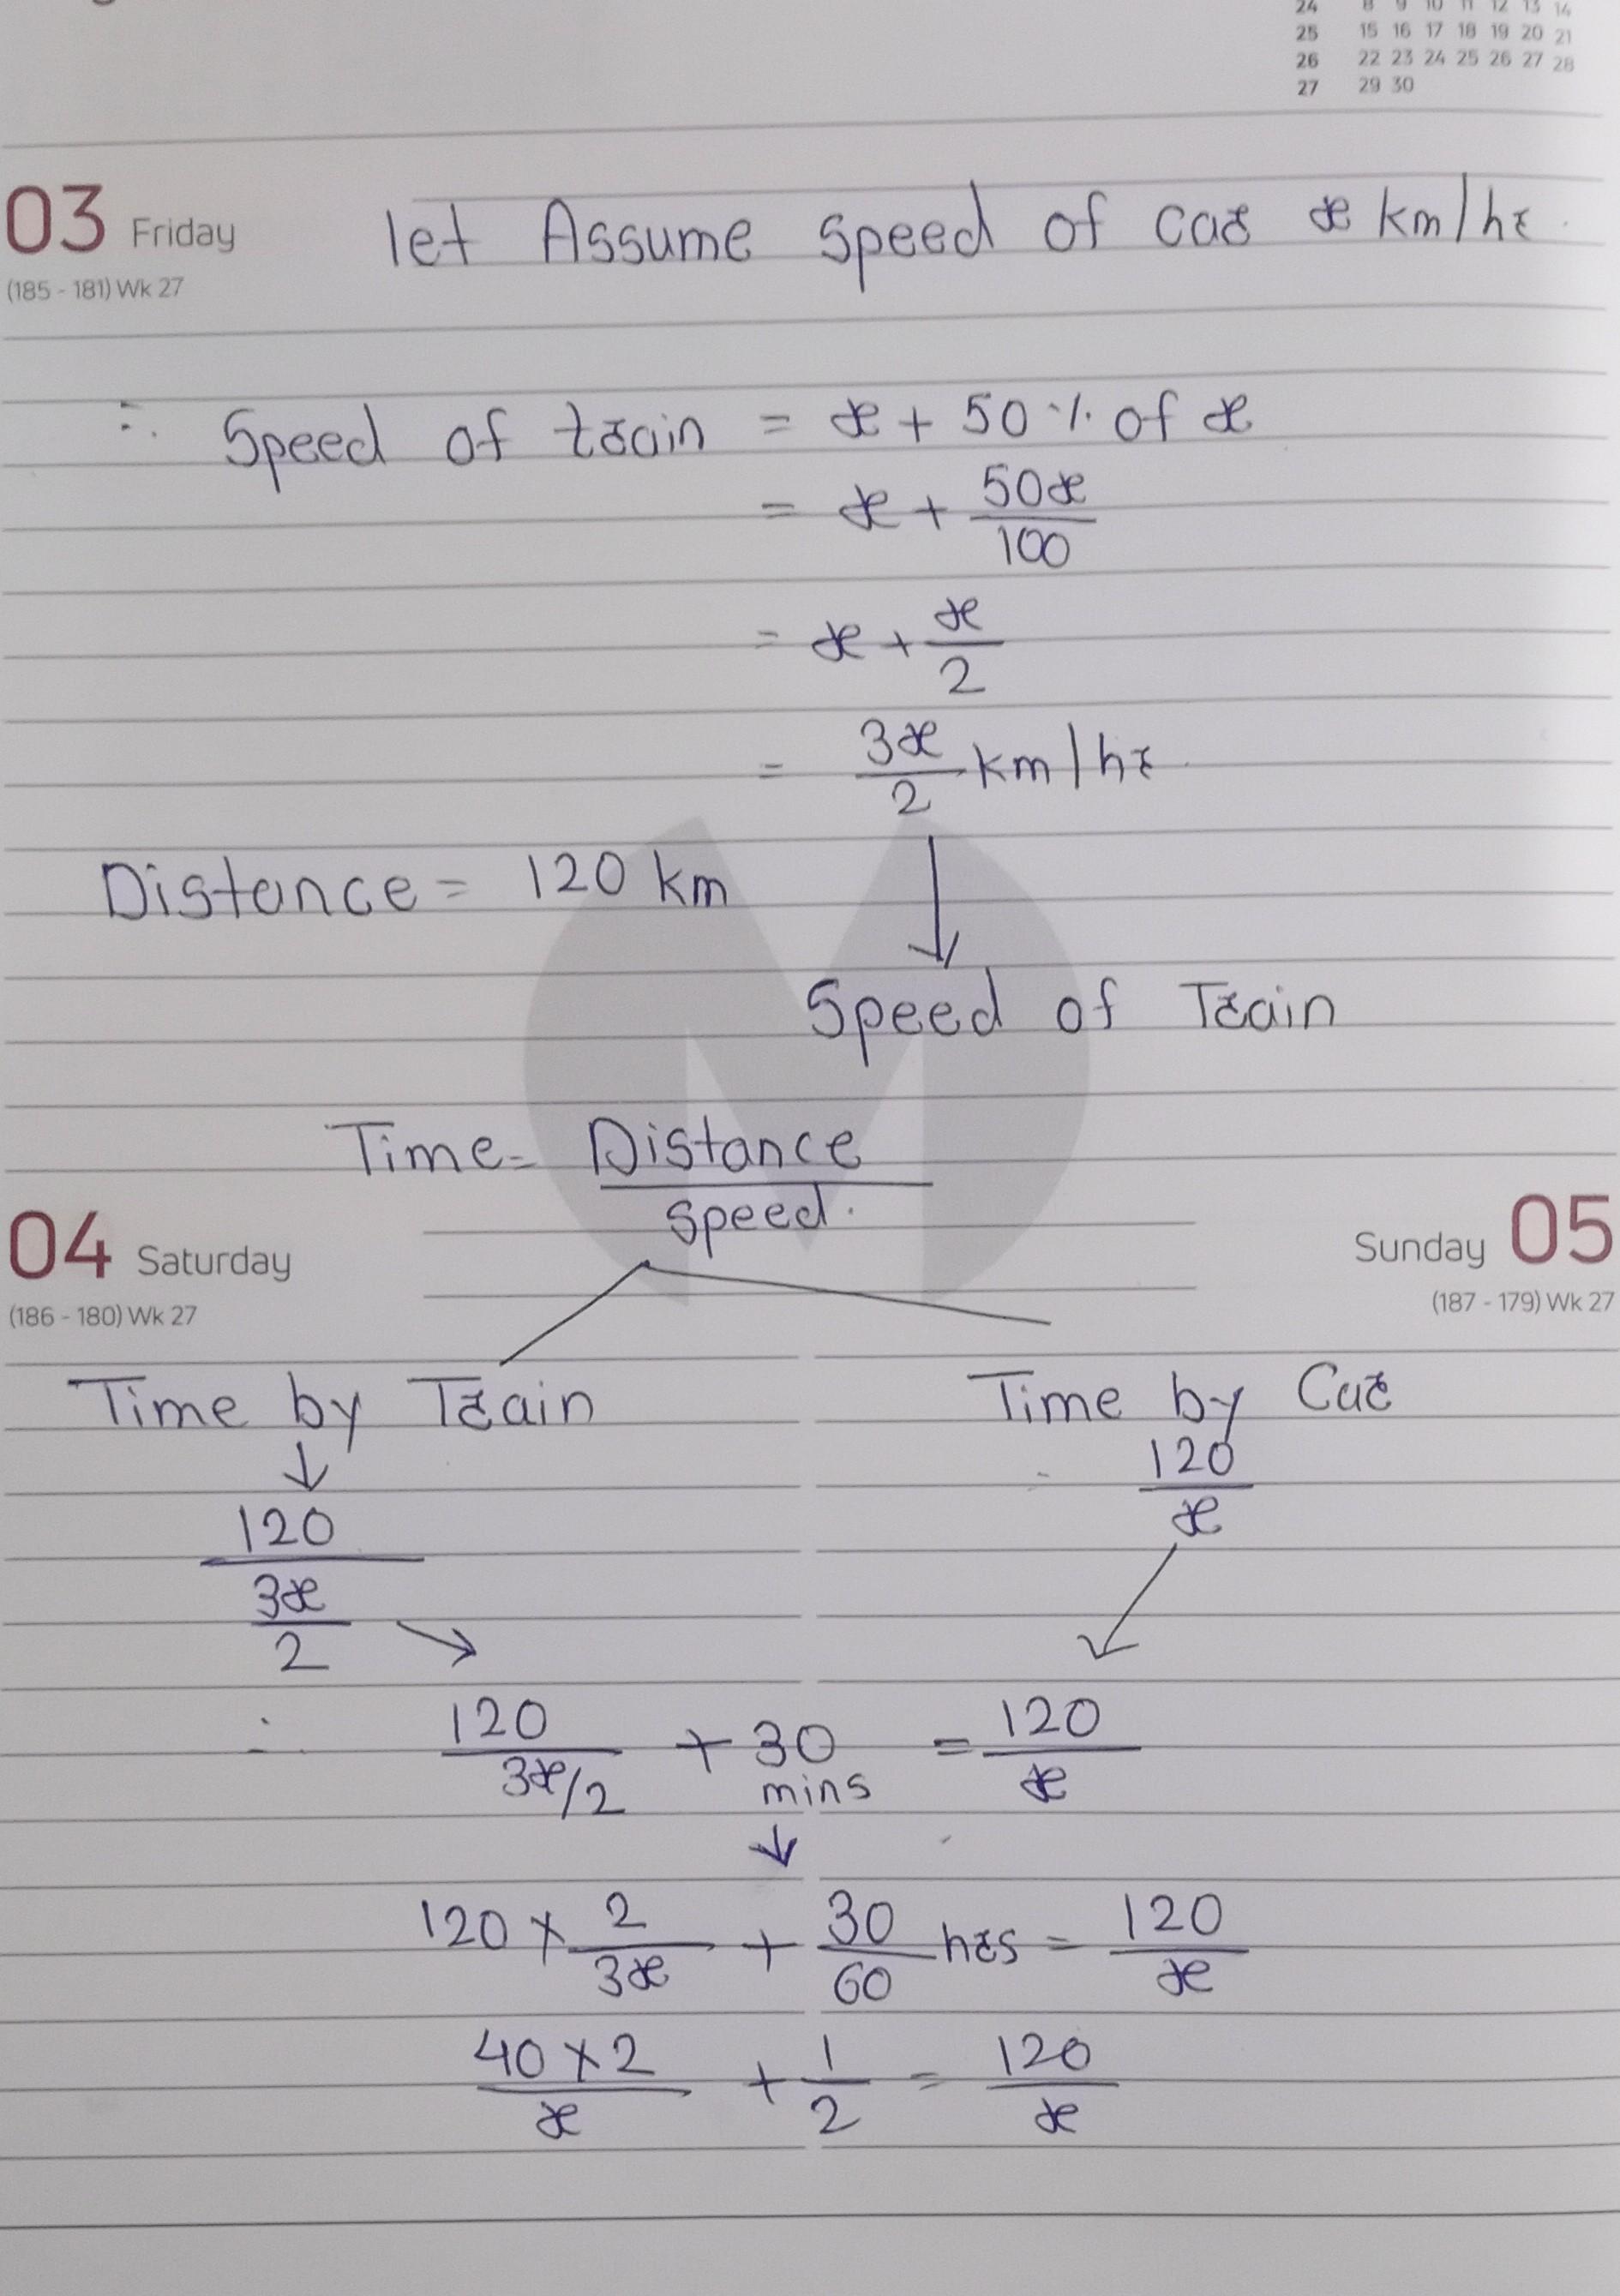 24 8 9 10 11 12 13 14
25 15 16 17 18 19 20 21
26 22 23 24 25 26 27 28
27 29 30
03 Friday
(185 - 181) Wk 27
let Assume speed of car x km/hr.
∴ Speed of train = x + 50 % of x
= x + 50x/100
= x + x/2
= 3x/2 km/hr.
Distance = 120 km
↓
Speed of Train
Time = Distance/speed.
04 Saturday
(186 - 180) Wk 27
Sunday 05
(187 - 179) Wk 27
Time by Train Time by Car
↓
120/(3x/2) 120/x
∴ 120/(3x/2) + 30 mins = 120/x
↓
120 × 2/3x + 30/60 hrs = 120/x
40 × 2/x + 1/2 = 120/x